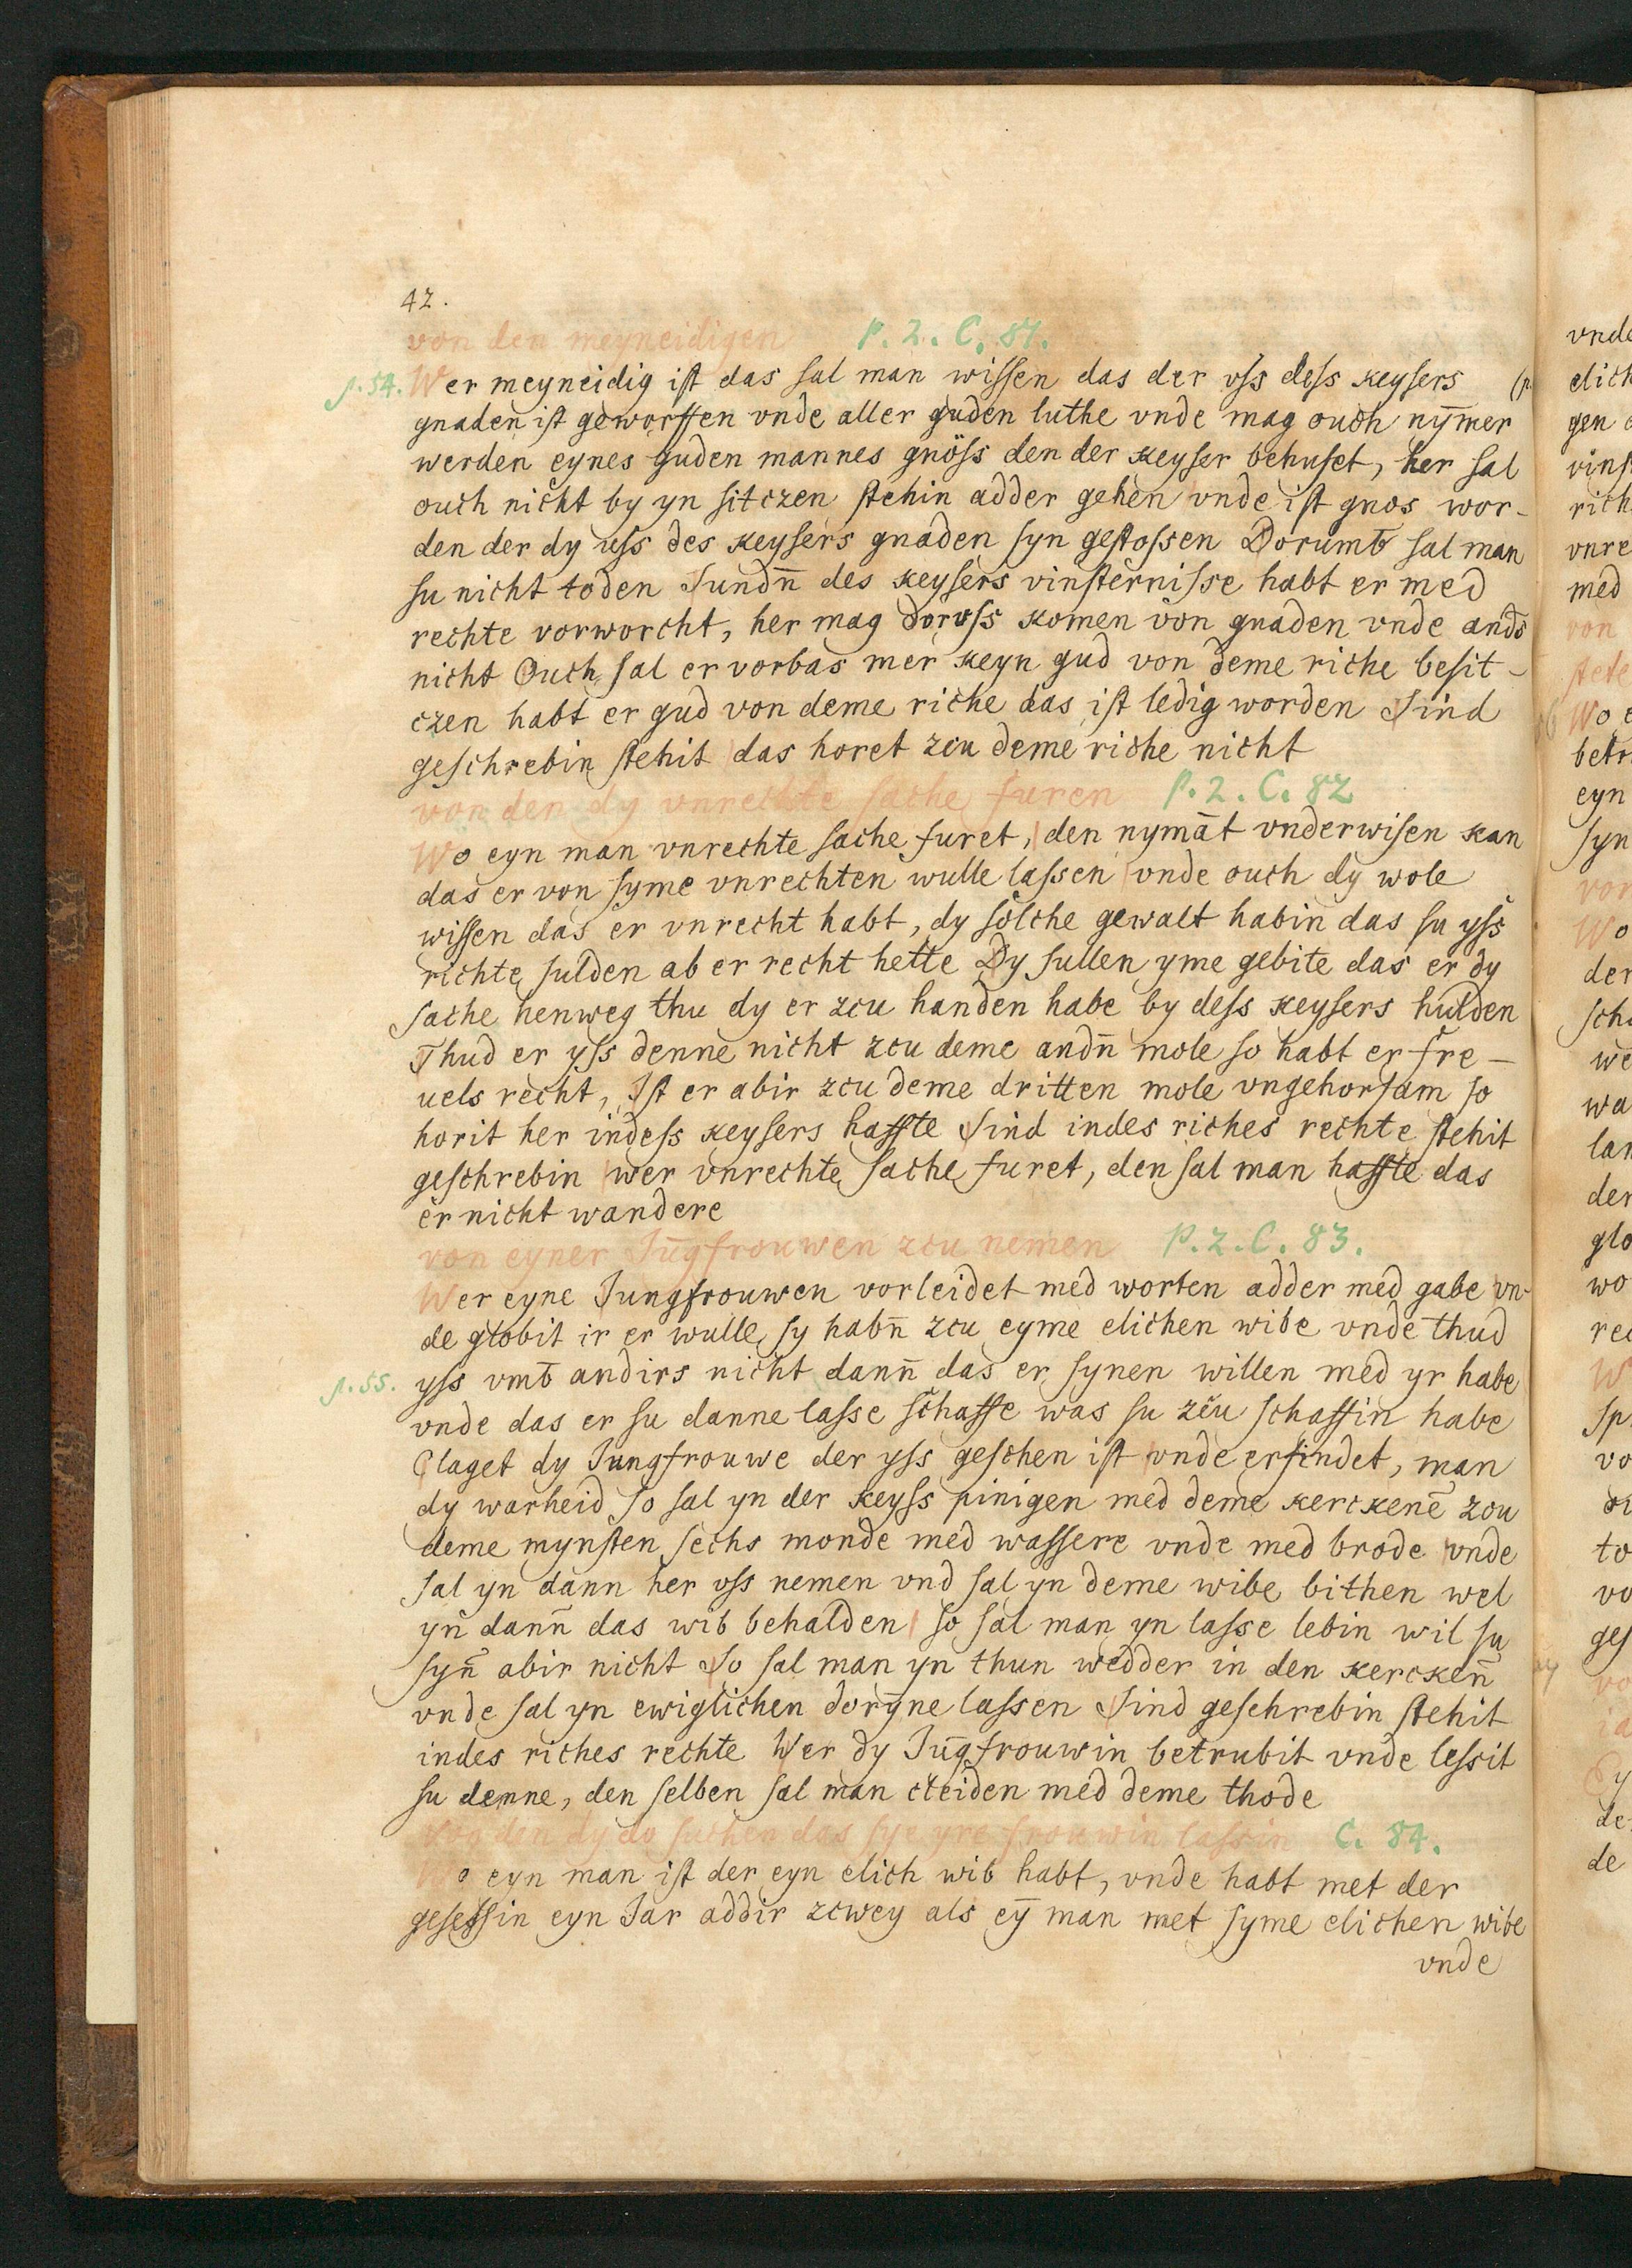 42.
von den meyneidigen P. 2. C. 81.
p. 54. Wer meyneidig ist das sal man wissen das der vss dess keysers
gnaden ist geworffen vnde aller guden luthe vnde mag ouch nȳmer
werden eynes guden mannes gnöss den der keyser behuset, her sal
ouch nicht by yn sitczen stehin adder gehen vnde ist gnos wor-
den der dy uss des keysers gnaden syn gestossen Dorumb sal man
su nicht toden Sundn̄ des keysers vinsternisse habt er med
rechte vorworcht, her mag doruss komen von gnaden vnde ands
nicht Ouch sal er vorbas mer keyn gud von deme riche besit-
czen habt er gud von deme riche das ist ledig worden Sind
geschrebin stehit das horet zcu deme riche nicht
von den dy vnrechte sache furen P. 2. C. 82
Wo eyn man vnrechte sache furet, den nymāt vnderwisen kan
das er von syme vnrechten wulle lassen vnde ouch dy wole
wissen das er vnrecht habt, dy solche gewalt habin das su yss
richte sulden ab er recht hette Dy sullen yme gebite das er dy
sache henweg thu dy er zcu handen habe by dess keysers hulden
Thud er yss denne nicht zcu deme andn̄ mole so habt er fre-
uels recht, Ist er abir zcu deme dritten mole vngehorsam so
horit her indess keysers haffte Sind indes riches rechte stehit
geschrebin wer vnrechte sache furet, den sal man haffte das
er nicht wandere
von eyner Jūgfrouwen zcu nemen P. 2. C. 83.
Wer eyne Jungfrouwen vorleidet med worten adder med gabe vn-
de globit ir er wulle sy habn̄ zcu eyme elichen wibe vnde thud
p. 55. yss vmb andirs nicht dann̄ das er synen willen med yr habe
vnde das er su danne lasse schaffe was su zcu schaffin habe
Claget dy Jungfrouwe der yss geschen ist vnde erfindet, man
dy warheid so sal yn der keyss pinigen med deme kerckenē zcu
deme mynsten sechs monde med wassere vnde med brode vnde
sal yn dann her vss nemen vnd sal yn deme wibe bithen wel
yn̄ dann̄ das wib behalden so sal man yn lasse lebin wil su
syn̄ abir nicht So sal man yn thun wedder in den kercken̄
vnde sal yn ewiglichen dorȳne lassen Sind geschrebin stehit
indes riches rechte Wer dy Jūgfrouwin betrubit vnde lessit
su denne, den selben sal man cleiden med deme thode
Von den dy do suchen das sye yre frouwin lassin C. 84.
Wo eyn man ist der eyn elich wib habt, vnde habt met der
gesessin eyn Jar addir zcwey als eȳ man met syme elichen wibe
vnde